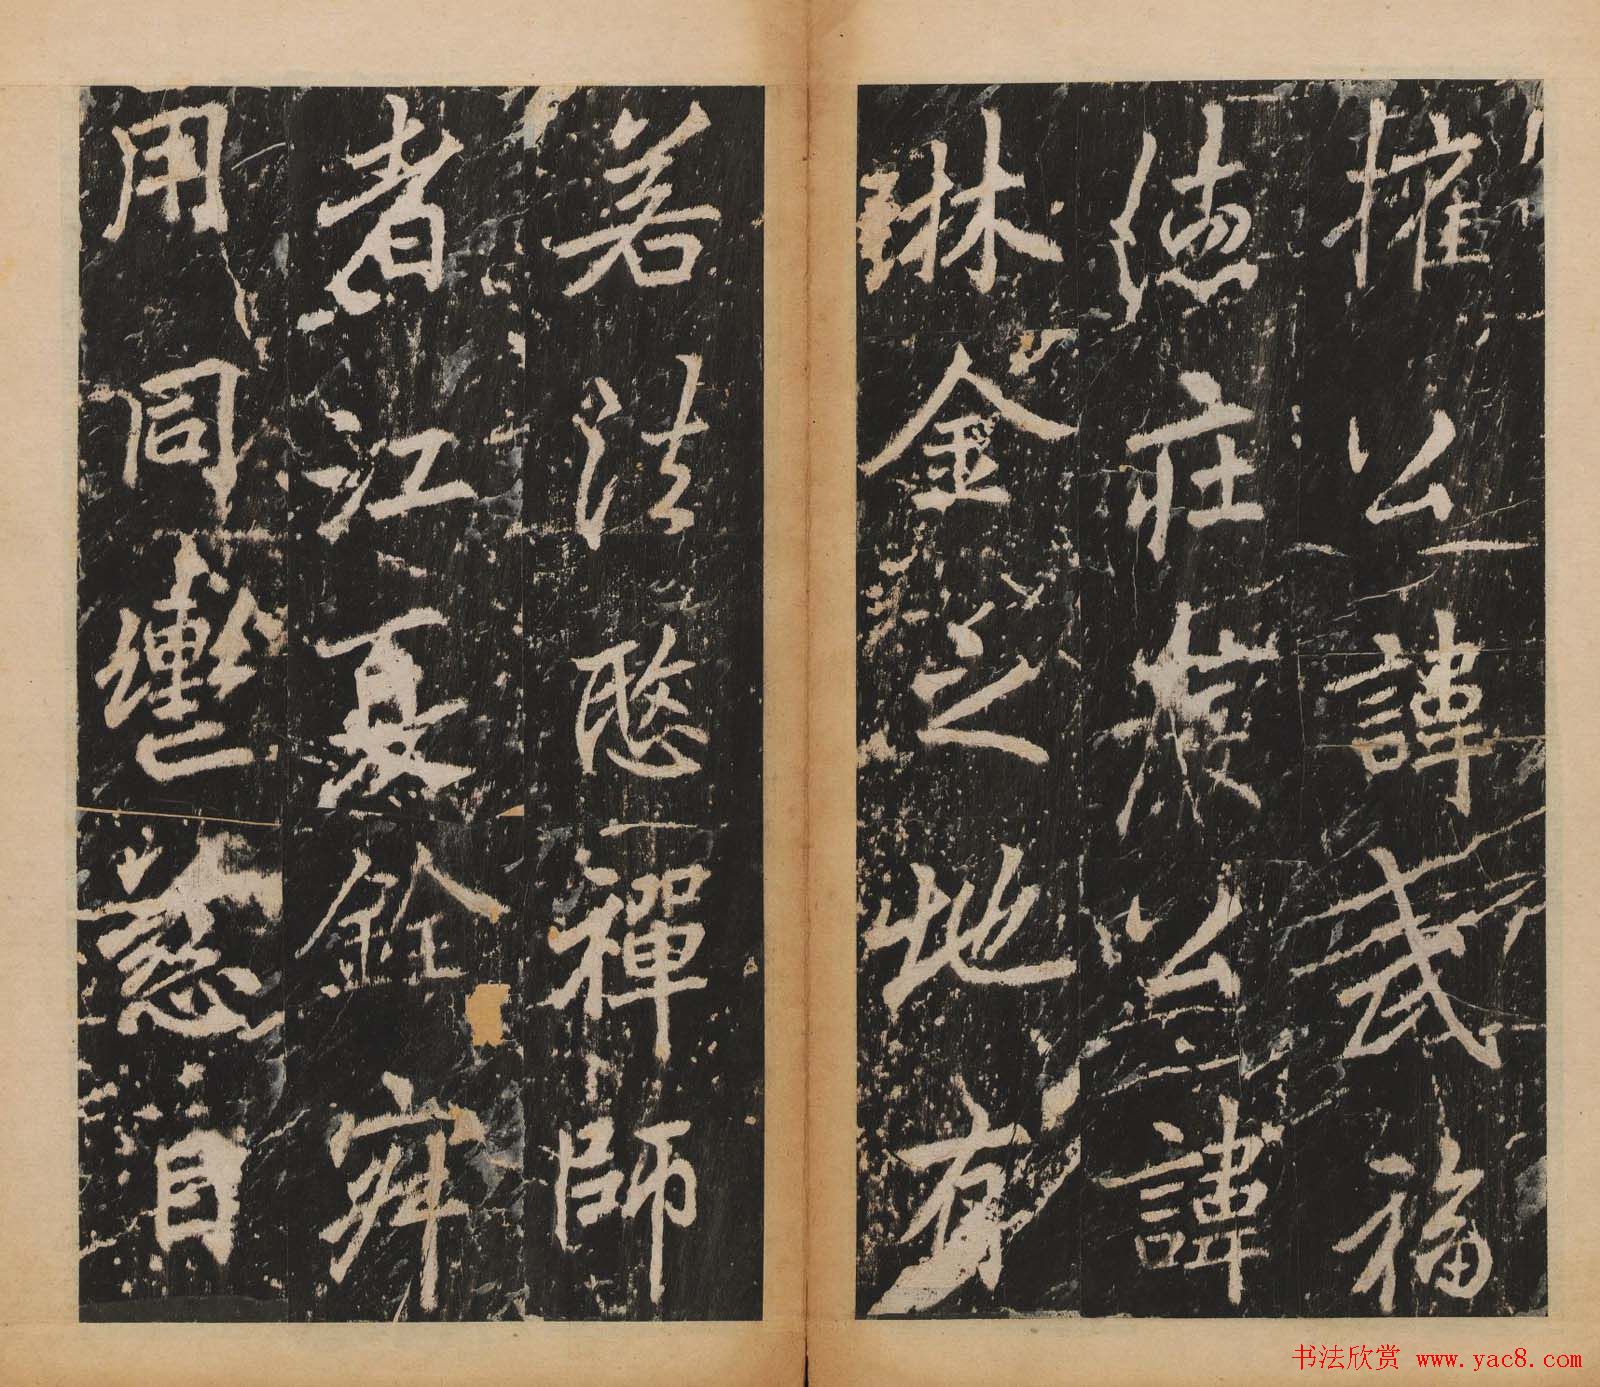 權公諱武福
德莊公諱
琳金之地有
若法愍禪師
者江夏銓宰
用同慈目
书法欣赏 www.yac8.com